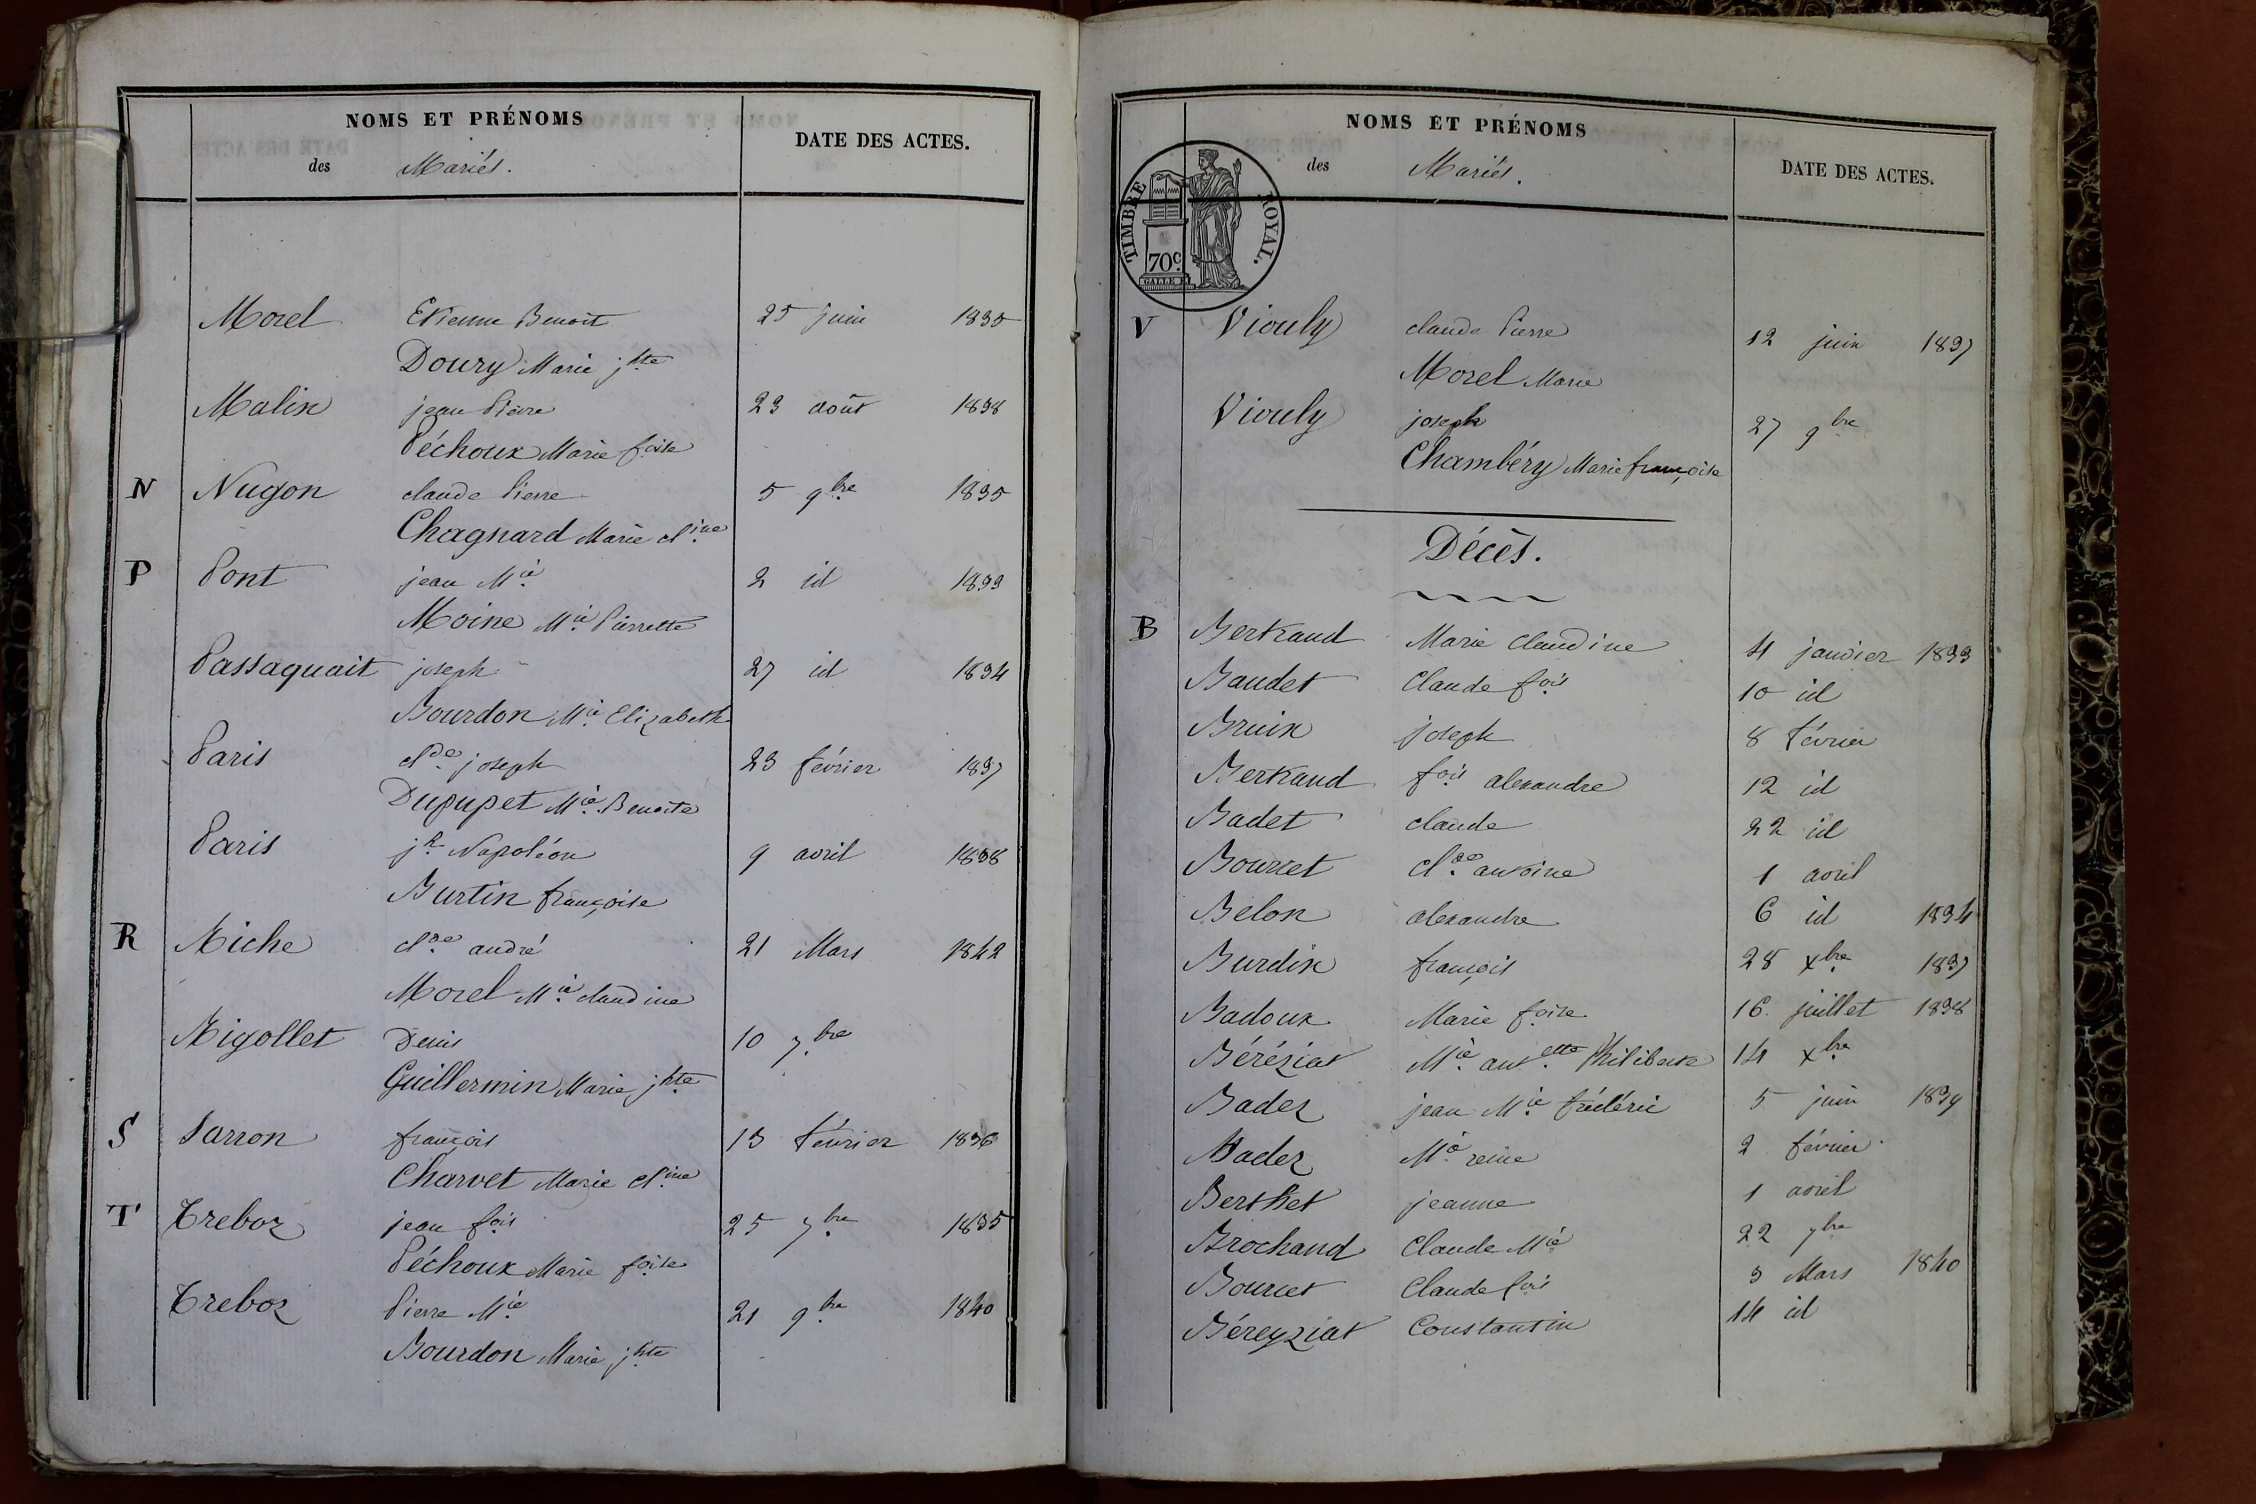 NOMS ET PRÉNOMS
des Mariés.
DATE DES ACTES.
Morel Etienne Benoit 25 juin 1835
Doury Marie jhte
Malin jean Pierre 23 août 1838
Péchoux Marie foise
N Nugon claude Pierre 5 9bre 1835
Chagnard Marie cline
P Pont jean Mie 2 id 1833
Moine Mie Pierrette
Passaquait joseph 27 id 1834
Bourdon Mie Elizabeth
Paris clde joseph 23 février 1837
Dupupet Mie Benoite
Paris jh Napoléon 9 avril 1838
Burtin françoise
R Riche clde andré 21 Mars 1842
Morel Mie claudine
Rigollet Denis 10 7bre
Guillermin Marie jhte
S Sarron françois 13 février 1836
Charvet Marie cline
T Treboz jean fois 25 7bre 1835
Péchoux Marie foise
Treboz Pierre Mie 21 9bre 1840
Bourdon Marie jhte
NOMS ET PRÉNOMS
des Mariés.
DATE DES ACTES.
TIMBRE ROYAL.
70c
GALLE
V Viouly claude Pierre 12 juin 1837
Morel Marie
Viouly joseph 27 9bre
Chambéry Marie françoise
Décès.
B Bertraud Marie Claudine 4 janvier 1833
Baudet Claude fois 10 id
Bruin joseph 8 février
Bertraud fois alexandre 12 id
Badet claude 22 id
Bourcet clde antoine 1 avril
Belon alexandre 6 id 1834
Burdin françois 28 xbre 1837
Badoux Marie foise 16 juillet 1838
Béréziat Mie antette Philiberte 14 xbre
Badez jean Mie frédéric 5 juin 1839
Badez Mie reine 2 février
Berthet jeanne 1 avril
Brochand Claude Mie 22 7bre
Bourcet Claude fois 3 Mars 1840
Béreyziat Constantin 14 id